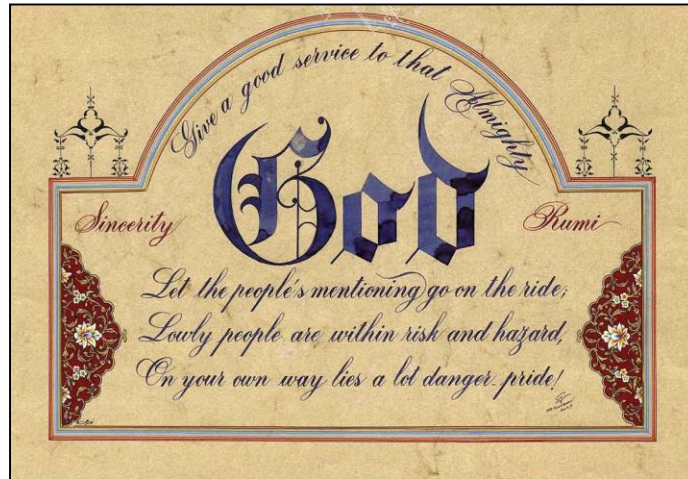 Give a good service to that Almighty
God
Sincerity
Rumi
Let the people's mentioning go on the ride;
Lowly people are within risk and hazard,
On your own way lies a lot danger-pride!